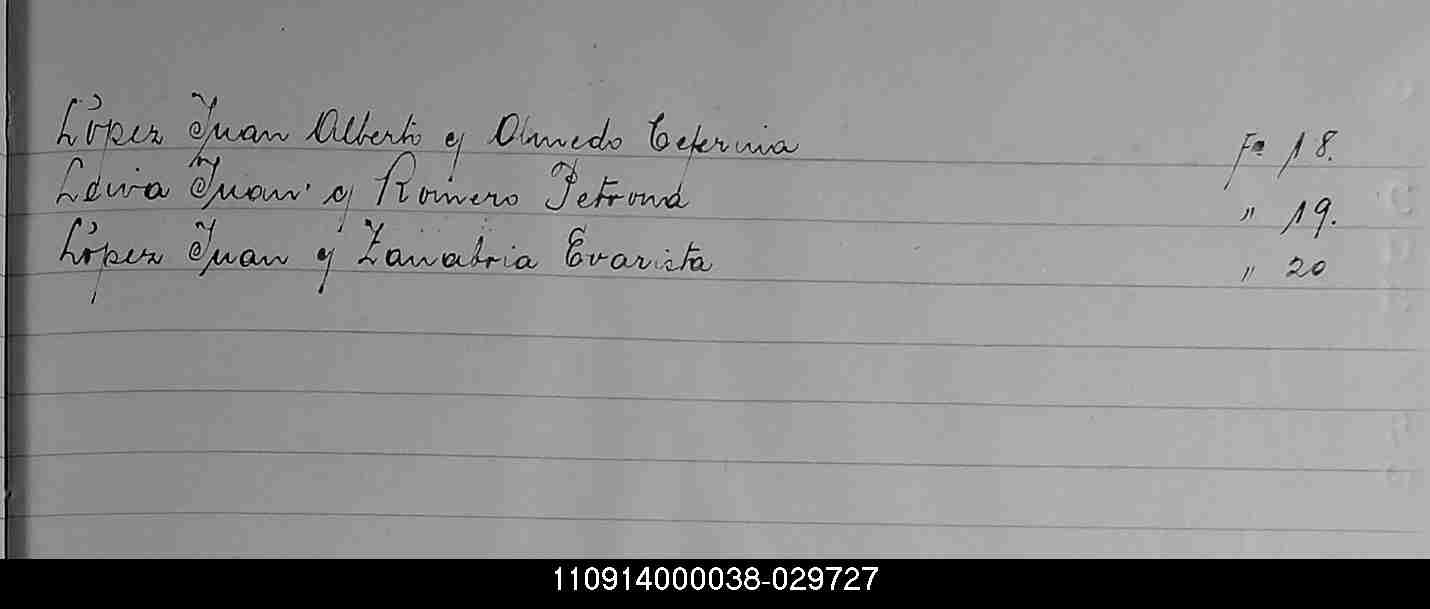 López Juan Alberto y Olmedo Ceferina Fo 18.
Leiva Juan y Romero Petrona " 19.
López Juan y Zanabria Evarista " 20
110914000038-029727